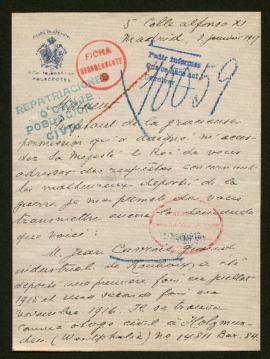 5 Calle Alfonso XI
Madrid 2 janvier 1917
FICHA
REGLAMENTARIA
Pedir Informes
REPATRIACIONES
O CANJE
POBLACION
CIVIL
16059
de la gracieuse
permission qu'a daigné m'accor
der Sa Majesté le Roi de vous
adresser des requêtes concernant
les malheureux déportés de la
guerre, je me permets de vous
transmettre la demande
que voici:
M. Jean
industriel de Roubaix a été
déporté une première fois en juillet
1915 et une seconde fois en
novembre 1916. Il se trouve
comme otage civil à Holzmin-
den (Westphalie) no 14811 Bar. 84.